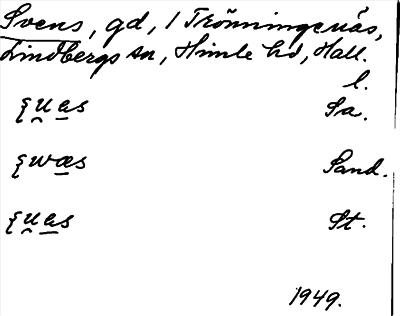 Svens, gd, / Trönningenäs,
Lindbergs sn, Himle hd, Hall. l.
ʂu̯a̠s Sa.
ʂwæ̠s Sand.
ʂu̯a̠s St.
1949.